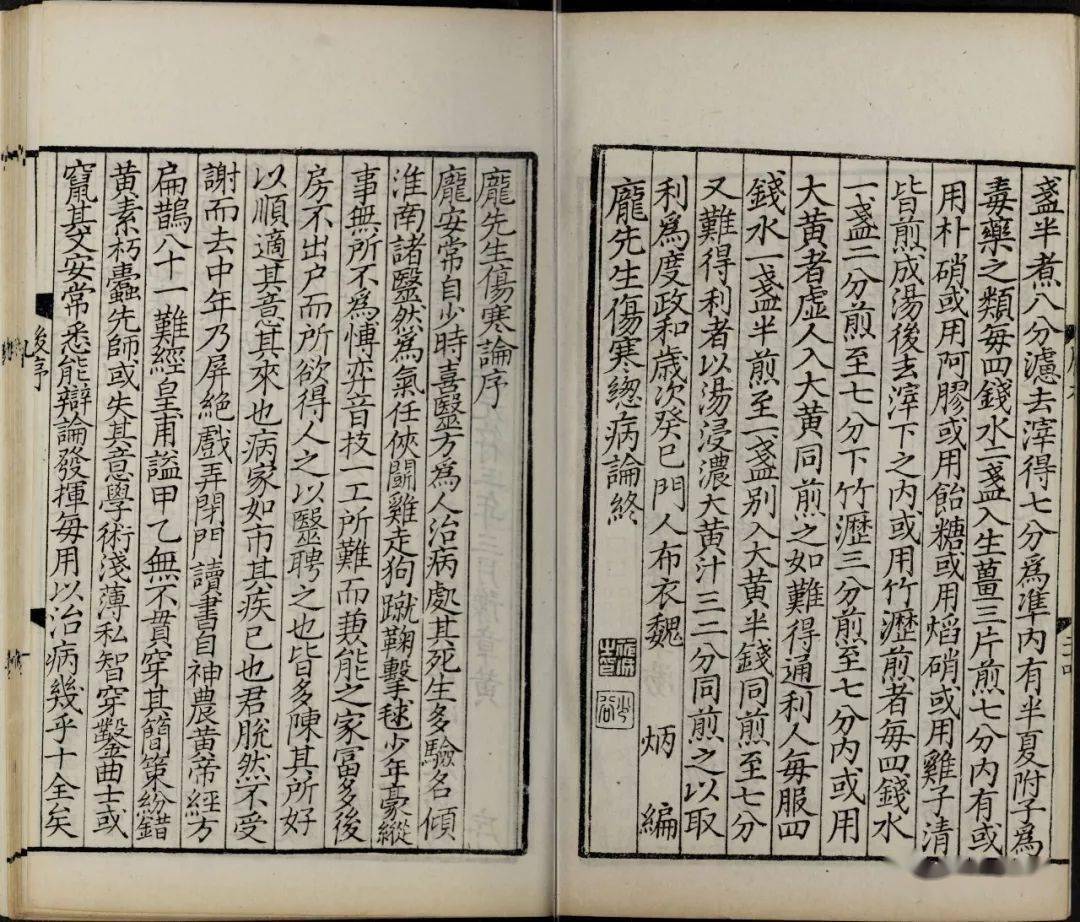 盞半煮八分濾去滓得七分為準内有半夏附子為
毒藥之類每四錢水二盞入生薑三片煎七分内有或
用朴硝或用阿膠或用飴糖或用熖硝或用雞子清
皆煎成湯後去滓下之内或用竹瀝煎者每四錢水
一盞二分煎至七分下竹瀝三分煎至七分内或用
大黄者虚人入大黄同煎之如難得通利人每服四
錢水一盞半煎至一盞别入大黄半錢同煎至七分
又難得利者以湯浸濃大黄汁三二分同煎之以取
利為度政和歲次癸巳門人布衣魏 炳 編
龐先生傷寒緫病論終
龐先生傷寒論序
龐安常自少時喜醫方為人治病處其死生多驗名傾
淮南諸醫然為氣任俠鬭雞走狗蹴鞠擊毬少年豪縱
事無所不為愽弈音技一工所難而兼能之家富多後
房不出户而所欲得人之以醫聘之也皆多陳其所好
以順適其意其來也病家如市其疾已也君脱然不受
謝而去中年乃屏絶戲弄閉門讀書自神農黄帝經方
扁鵲八十一難經皇甫謐甲乙無不貫穿其簡策紛錯
黄素朽蠹先師或失其意學術淺薄私智穿鑿曲士或
竄其文安常悉能辯論發揮每用以治病幾乎十全矣
後序